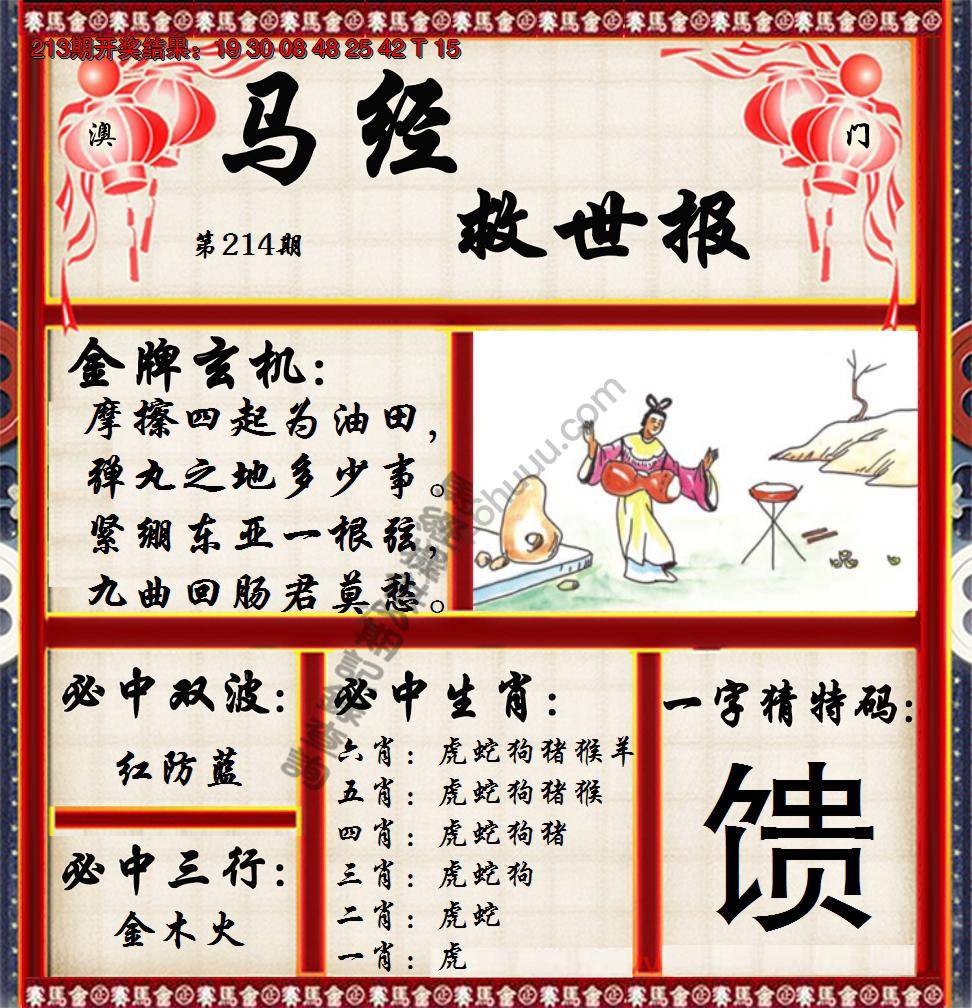 赛马会
213期开奖结果：19 30 08 48 25 42 T 15
澳
门
马经
救世报
第214期
金牌玄机：
摩擦四起为油田，
弹丸之地多少事。
紧绷东亚一根弦，
九曲回肠君莫愁。
必中双波：
红防蓝
必中三行：
金木火
必中生肖：
六肖：虎蛇狗猪猴羊
五肖：虎蛇狗猪猴
四肖：虎蛇狗猪
三肖：虎蛇狗
二肖：虎蛇
一肖：虎
一字猜特码：
馈